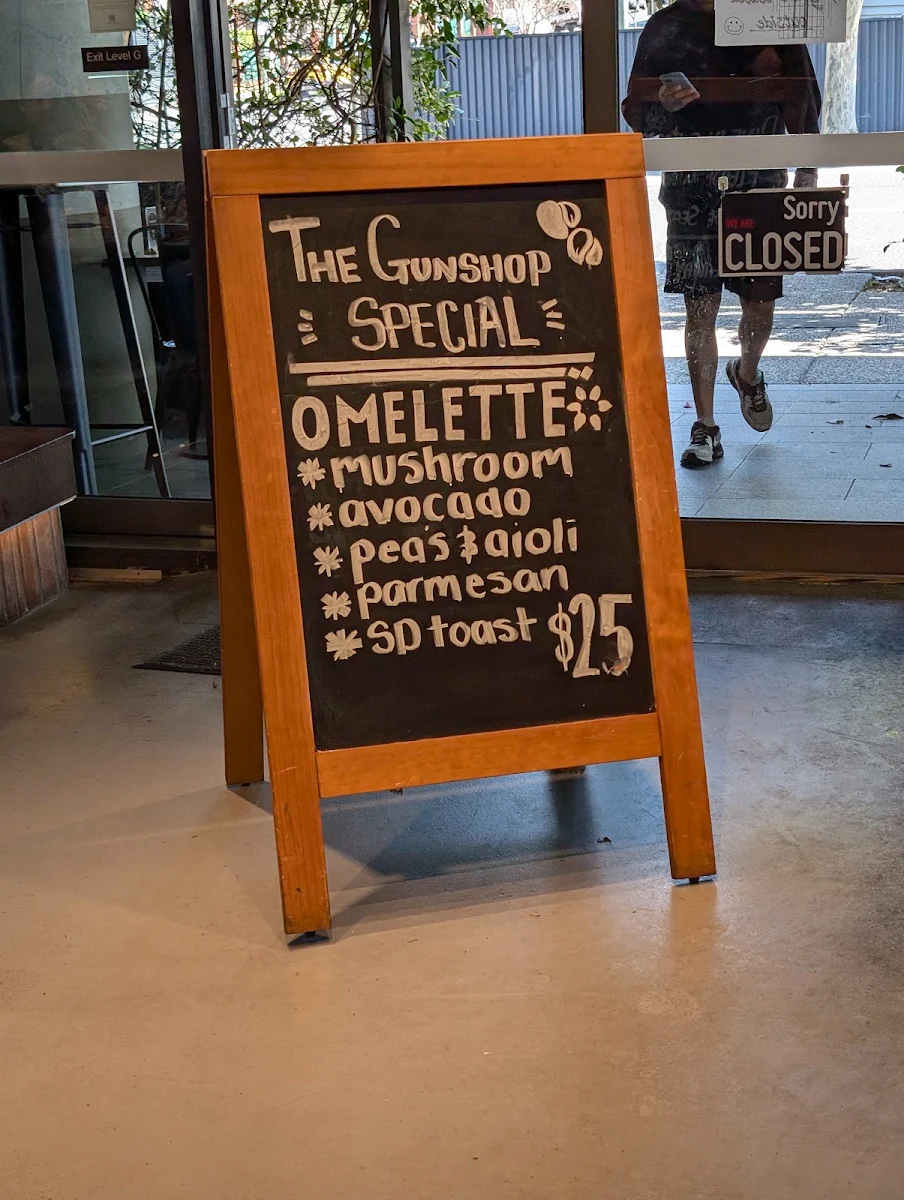 Exit Level G
outside
Sorry
WE ARE
CLOSED
THE GUNSHOP
SPECIAL
OMELETTE
mushroom
avocado
pea's & aioli
parmesan
SD toast $25